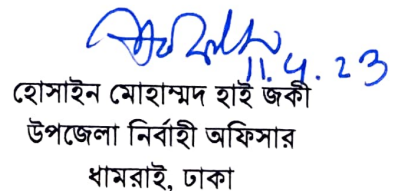 11.4.23
হোসাইন মোহাম্মদ হাই জকী
উপজেলা নির্বাহী অফিসার
ধামরাই, ঢাকা